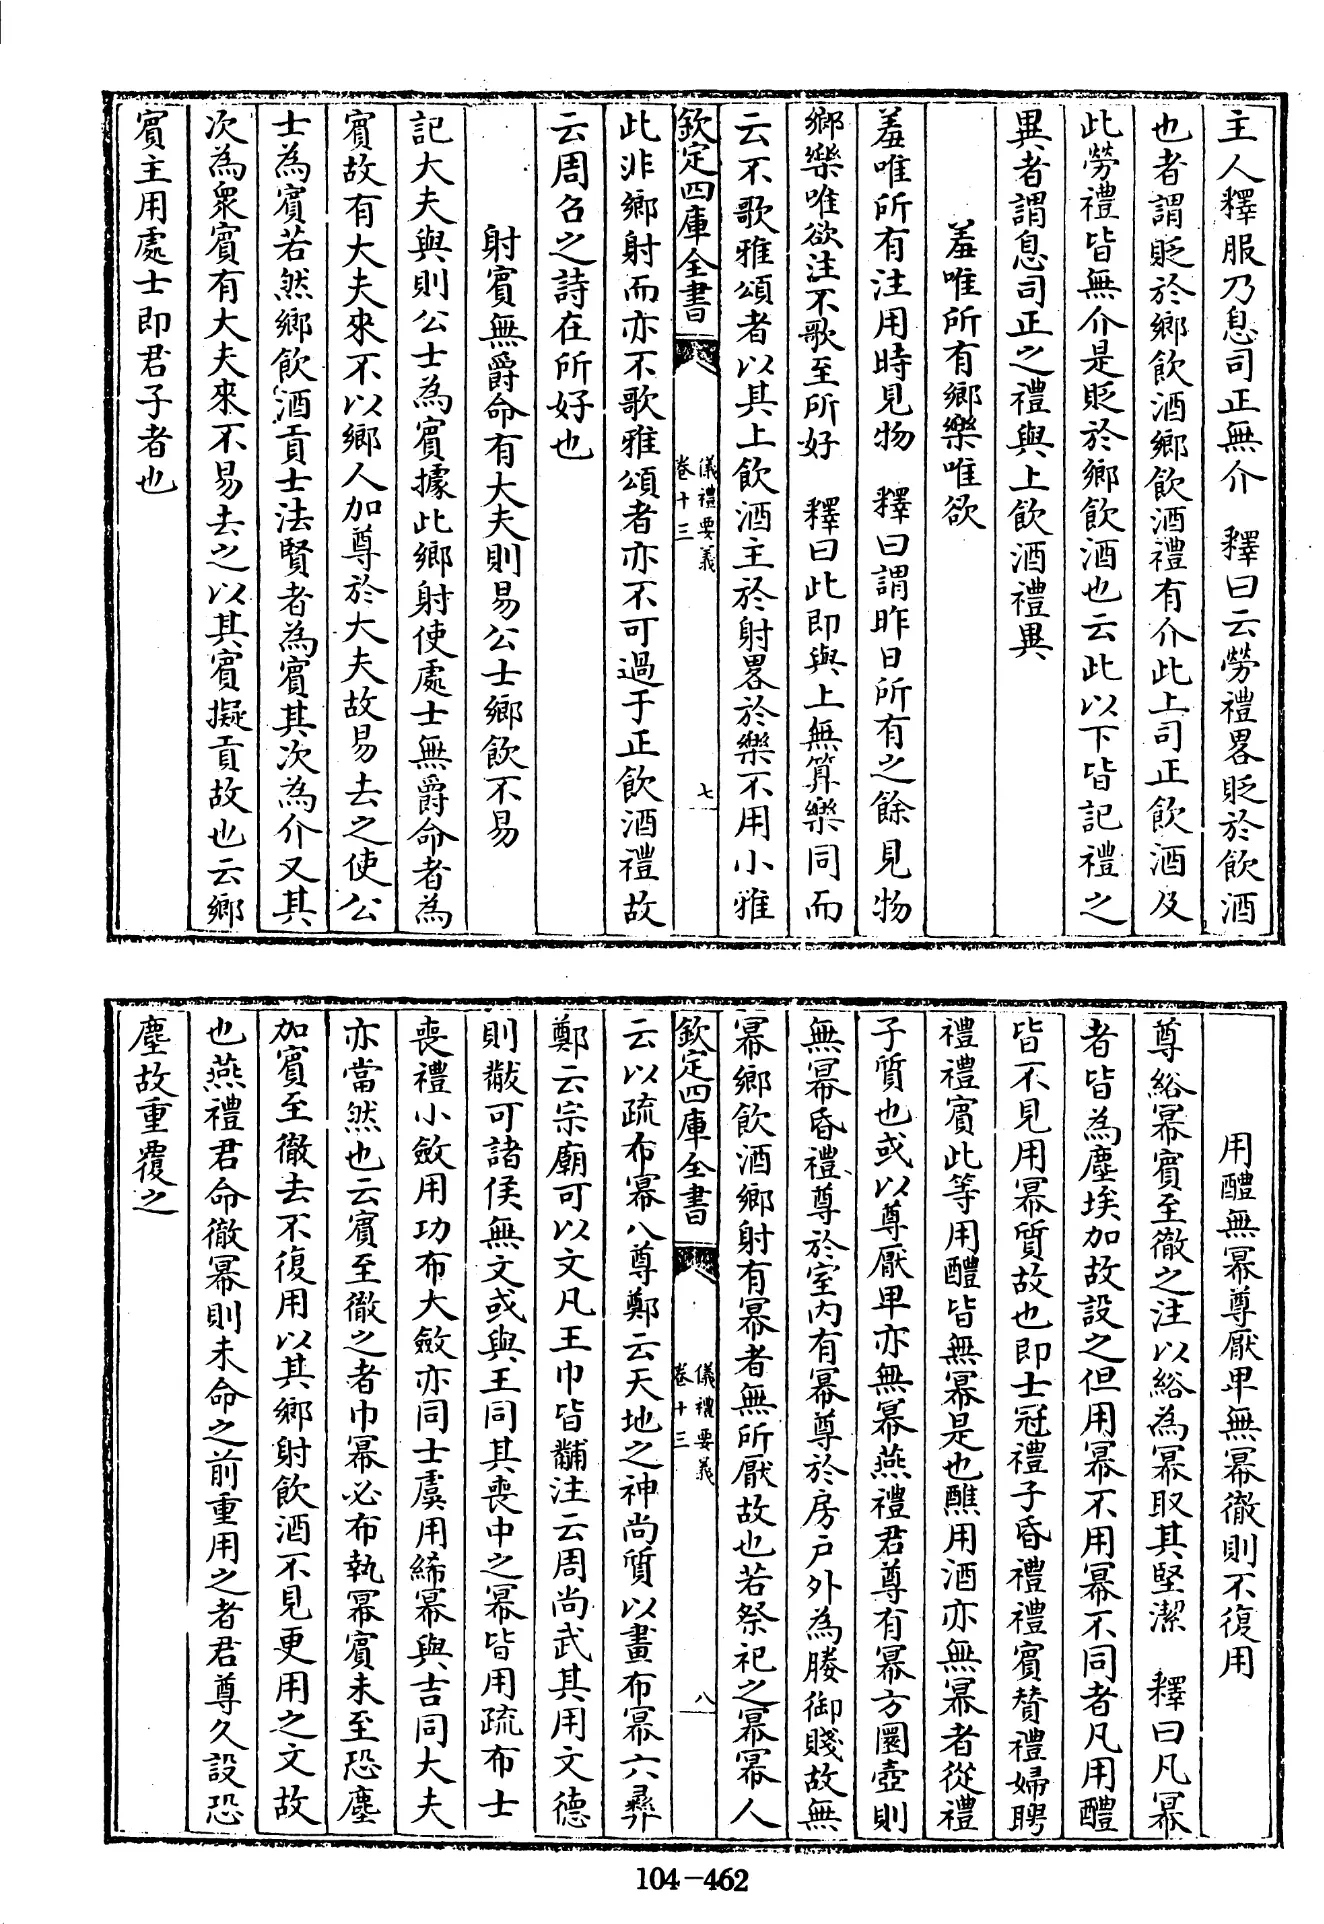 主人釋服乃息司正無介　釋曰云勞禮畧貶於飲酒
也者謂貶於鄉飲酒鄉飲酒禮有介此上司正飲酒及
此勞禮皆無介是貶於鄉飲酒也云此以下皆記禮之
異者謂息司正之禮與上飲酒禮異
羞唯所有鄉樂唯欲
羞唯所有注用時見物　釋曰謂昨日所有之餘見物
鄉樂唯欲注不歌至所好　釋曰此即與上無算樂同而
云不歌雅頌者以其上飲酒主於射畧於樂不用小雅
欽定四庫全書
儀禮要義
卷十三
七
此非鄉射而亦不歌雅頌者亦不可過于正飲酒禮故
云周召之詩在所好也
射賓無爵命有大夫則易公士鄉飲不易
記大夫與則公士為賓據此鄉射使處士無爵命者為
賓故有大夫來不以鄉人加尊於大夫故易去之使公
士為賓若然鄉飲酒貢士法賢者為賓其次為介又其
次為衆賓有大夫來不易去之以其賓擬貢故也云鄉
賓主用處士即君子者也
用醴無冪尊厭卑無冪徹則不復用
尊綌冪賓至徹之注以綌為冪取其堅潔　釋曰凡冪
者皆為塵埃加故設之但用冪不用冪不同者凡用醴
皆不見用冪質故也即士冠禮子昏禮禮賓贊禮婦聘
禮禮賓此等用醴皆無冪是也醮用酒亦無冪者從禮
子質也或以尊厭卑亦無冪燕禮君尊有冪方圜壺則
無冪昏禮尊於室内有冪尊於房户外為媵御賤故無
冪鄉飲酒鄉射有冪者無所厭故也若祭祀之冪冪人
欽定四庫全書
儀禮要義
卷十三
八
云以疏布冪八尊鄭云天地之神尚質以畫布冪六彛
鄭云宗廟可以文凡王巾皆黼注云周尚武其用文德
則黻可諸侯無文或與王同其喪中之冪皆用疏布士
喪禮小斂用功布大斂亦同士虞用絺冪與吉同大夫
亦當然也云賓至徹之者巾冪必布執冪賓未至恐塵
加賓至徹去不復用以其鄉射飲酒不見更用之文故
也燕禮君命徹冪則未命之前重用之者君尊久設恐
塵故重覆之
104-462